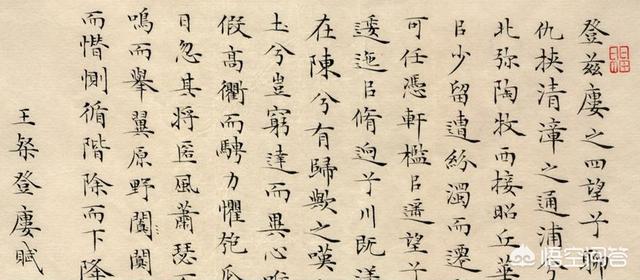 登兹廔之四望兮聊
仇挾清漳之通浦兮
北弥陶牧西接昭丘華
㠯少留遭紛濁而遷
可任憑軒檻㠯遥望兮
逶迤㠯脩迥兮川既漾
在陳兮有歸歟之嘆
土兮豈窮達而異心惟
假髙衢而騁力懼匏瓜
日忽其將匿風蕭瑟而
鳴而舉翼原野闃
而憯惻循階除而下降
王粲登廔賦
悟空问答